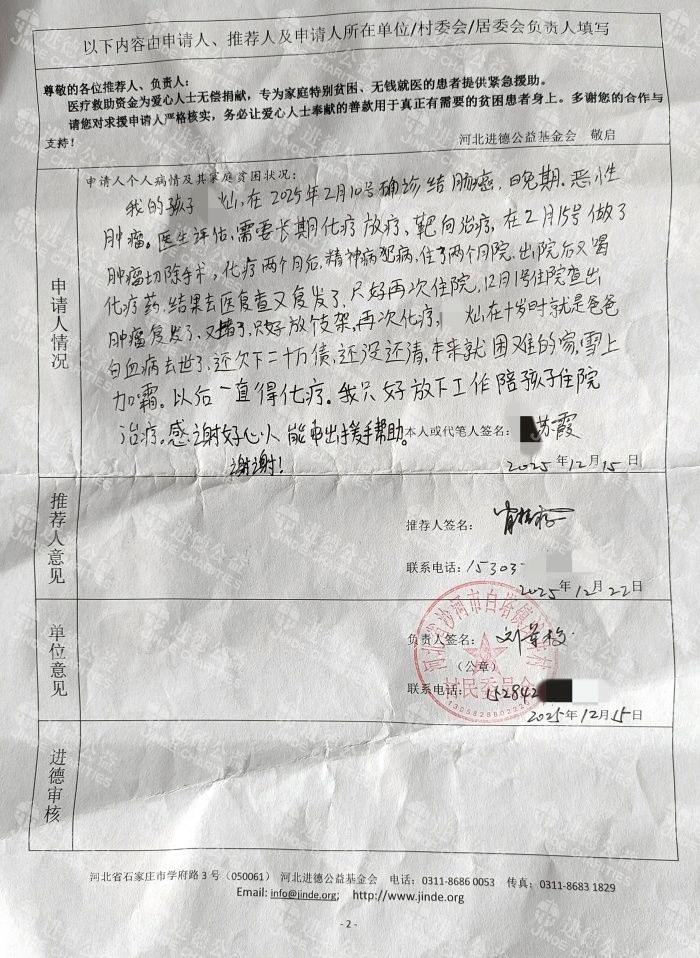 以下内容由申请人、推荐人及申请人所在单位/村委会/居委会负责人填写
尊敬的各位推荐人、负责人：
医疗救助资金为爱心人士无偿捐献，专为家庭特别贫困、无钱就医的患者提供紧急援助。
请您对求援申请人严格核实，务必让爱心人士奉献的善款用于真正有需要的贫困患者身上。多谢您的合作与
支持！
河北进德公益基金会 敬启
申请人情况
申请人个人病情及其家庭贫困状况：
我的孩子 灿，在2025年2月10号确诊结肠癌，晚期。恶性
肿瘤。医生评估，需要长期化疗放疗，靶向治疗，在2月15号做了
肿瘤切除手术，化疗两个月后，精神病犯病，住了两个月院，出院后又喝
化疗药，结果去医复查又复发了，只好再次住院，12月1号住院查出
肿瘤复发了，又堵了，只好放支架，再次化疗， 灿，在十岁时就是爸爸
白血病去世了，还欠下二十万债，还没还清，本来就困难的家，雪上
加霜。以后一直得化疗。我只好放下工作陪孩子住院
治疗。感谢好心人能伸出援手帮助。
谢谢！
本人或代笔人签名： 苏霞
2025年12月15日
推荐人意见
推荐人签名：
联系电话：15303
2025年12月22日
单位意见
负责人签名：
（公章）
联系电话：152842
2025年12月15日
河北省沙河市白塔镇
村民委员会
进德审核
河北省石家庄市学府路3号（050061） 河北进德公益基金会 电话：0311-8686 0053 传真：0311-8683 1829
Email: info@jinde.org; http://www.jinde.org
- 2 -
进德公益
JINDE CHARITIES